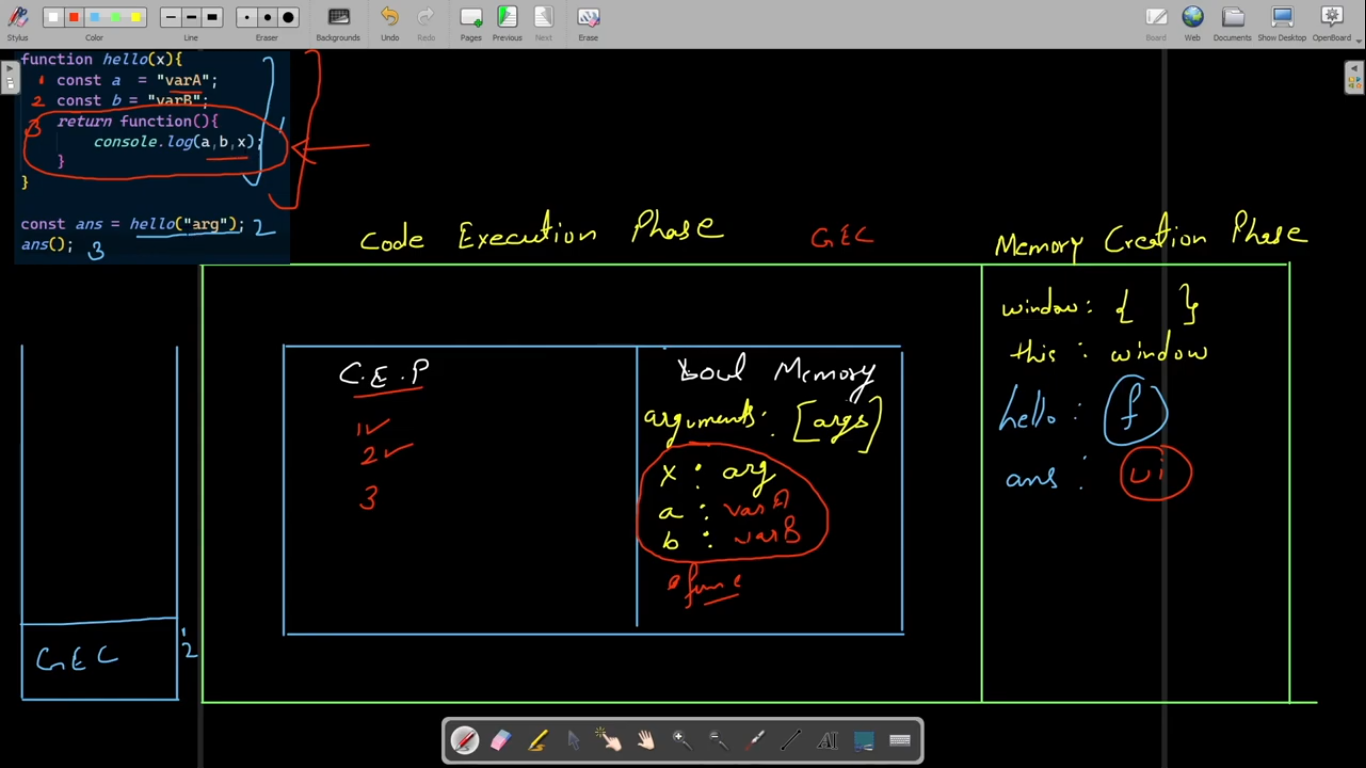 Stylus
Color
Line
Eraser
Backgrounds
Undo
Redo
Pages
Previous
Next
Erase
Board
Web
Documents
Show Desktop
OpenBoard
function hello(x){
1 const a = "varA";
2 const b = "varB";
3 return function(){
console.log(a,b,x);
}
}
const ans = hello("arg"); 2
ans(); 3
Code Execution Phase
GEC
Memory Creation Phase
window: { }
this : window
hello : f
ans : ui
C.E.P
1
2
3
Memory
arguments: [args]
x : arg
a : varA
b : varB
func
GEC
1
2